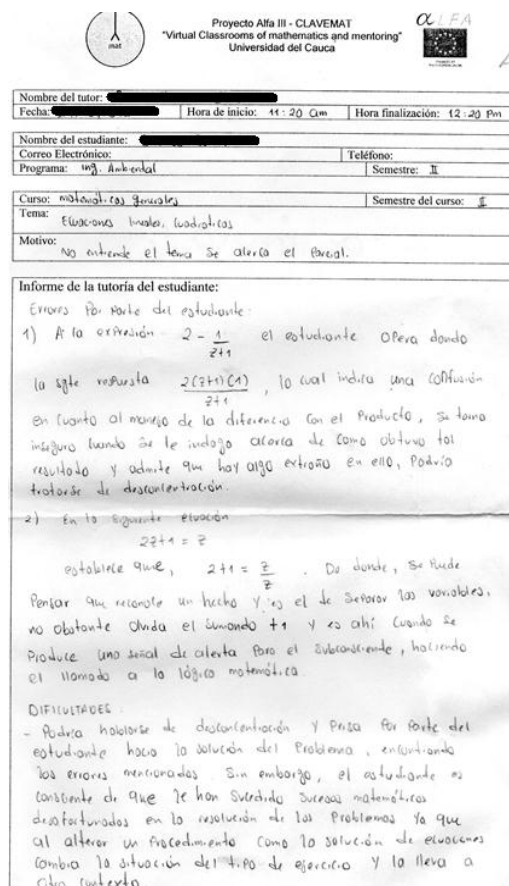 mat
Proyecto Alfa III - CLAVEMAT
"Virtual Classrooms of mathematics and mentoring"
Universidad del Cauca
ALFA
Nombre del tutor:
Fecha: Hora de inicio: 11:20 am Hora finalización: 12:20 Pm
Nombre del estudiante:
Correo Electrónico: Teléfono:
Programa: ing. Ambiental Semestre: II
Curso: matemáticas generales Semestre del curso: I
Tema: Ecuaciones lineales, cuadráticas
Motivo: No entiende el tema se acerca el Parcial.
Informe de la tutoría del estudiante:
Errores Por Parte del estudiante:
1) A la expresión 2 - 1/(z+1) el estudiante opera dando
la sgte respuesta 2(z+1)(1)/(z+1), lo cual indica una confusión
en cuanto al manejo de la diferencia con el Producto, se torna
inseguro cuando se le indago acerca de como obtuvo tal
resultado y admite que hay algo extraño en ello, Podría
tratarse de desconcentración.
2) En la siguiente ecuación
2z+1 = z
establece que, 2+1 = z/z. De donde, se Puede
Pensar que reconoce un hecho y es el de separar las variables,
no obstante olvida el sumando +1 y es ahí cuando se
Produce una señal de alerta Para el subconsciente, haciendo
el llamado a la lógica matemática.
DIFICULTADES.
- Podría hablarse de desconcentración y Prisa Por Parte del
estudiante hacia la solución del Problema, encontrando
los errores mencionados. Sin embargo, el estudiante es
consciente de que le han sucedido sucesos matemáticos
desafortunados en la resolución de los Problemas ya que
al alterar un Procedimiento como la solución de ecuaciones
cambia la situación del tipo de ejercicio y la lleva a
otro contexto.